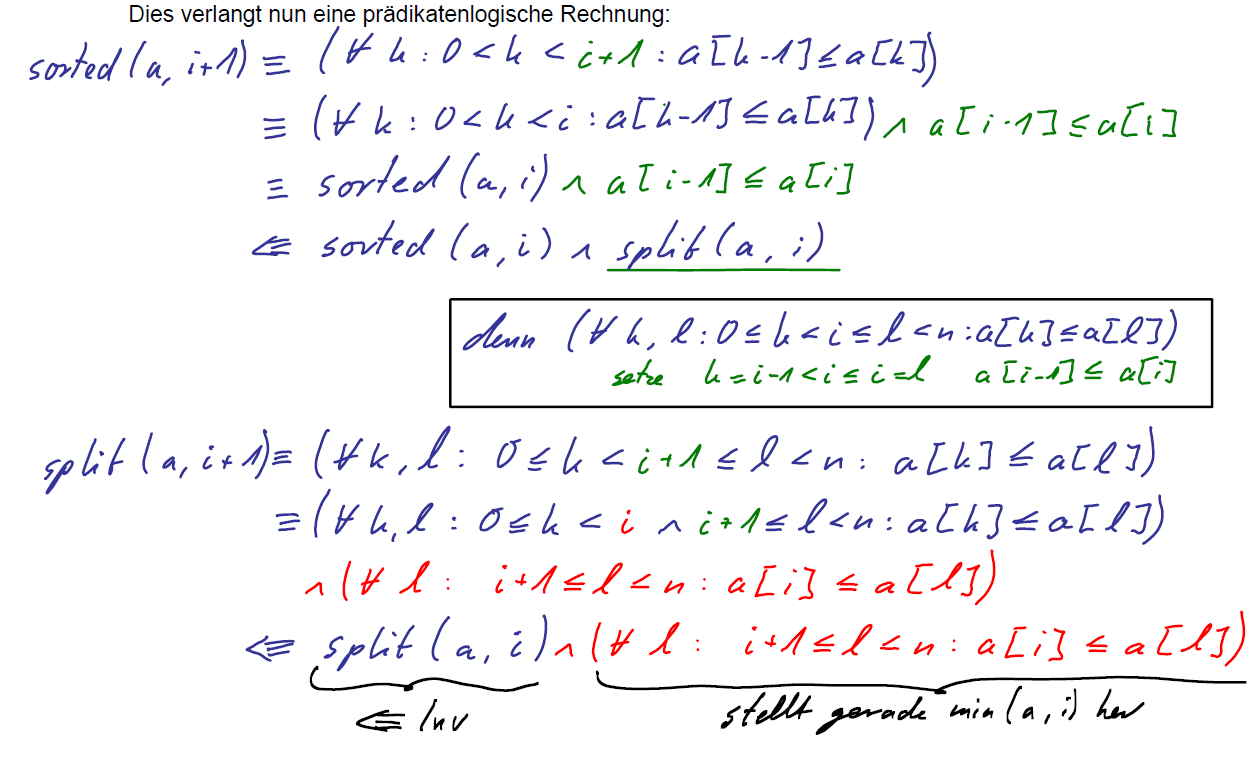 Dies verlangt nun eine prädikatenlogische Rechnung:
sorted (a, i+1) ≡ (∀ k : 0 < k < i+1 : a[k-1] ≤ a[k])
≡ (∀ k : 0 < k < i : a[k-1] ≤ a[k]) ∧ a[i-1] ≤ a[i]
≡ sorted (a, i) ∧ a[i-1] ≤ a[i]
⇐ sorted (a, i) ∧ split (a, i)
denn (∀ k, l : 0 ≤ k < i ≤ l < n : a[k] ≤ a[l])
setze k = i-1 < i ≤ i = l a[i-1] ≤ a[i]
split (a, i+1) ≡ (∀ k, l : 0 ≤ k < i+1 ≤ l < n : a[k] ≤ a[l])
≡ (∀ k, l : 0 ≤ k < i ∧ i+1 ≤ l < n : a[k] ≤ a[l])
∧ (∀ l : i+1 ≤ l < n : a[i] ≤ a[l])
⇐ split (a, i) ∧ (∀ l : i+1 ≤ l < n : a[i] ≤ a[l])
⇐ Inv stellt gerade min (a, i) her